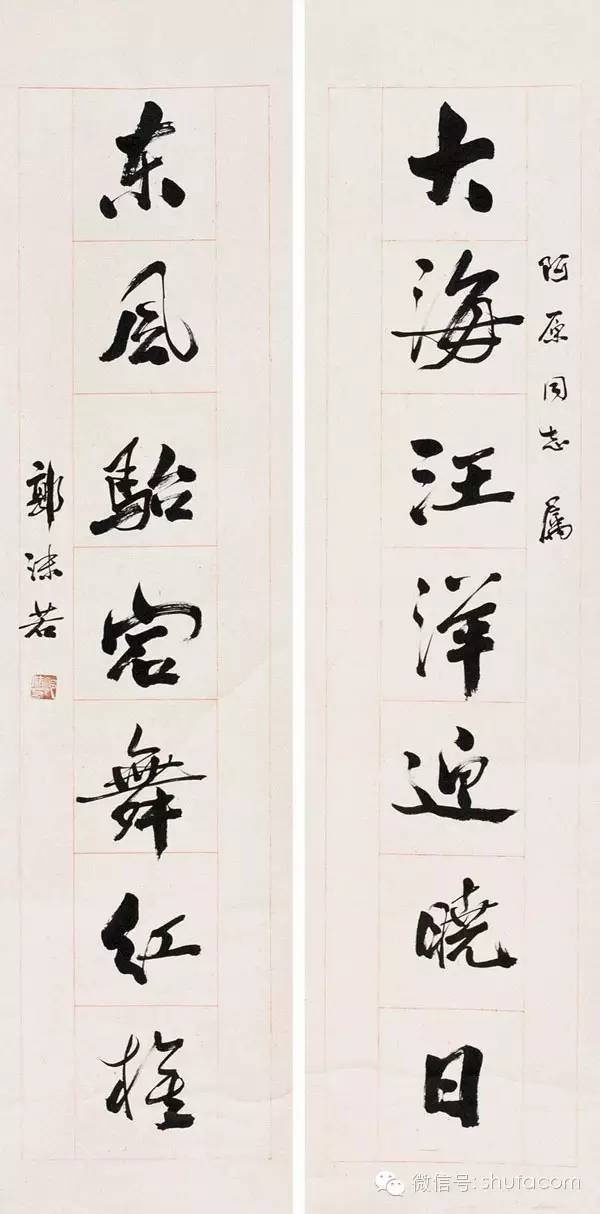 阿原同志属
大海汪洋迎曉日
东风駘宕舞红
郭沫若
微信号: shufacom